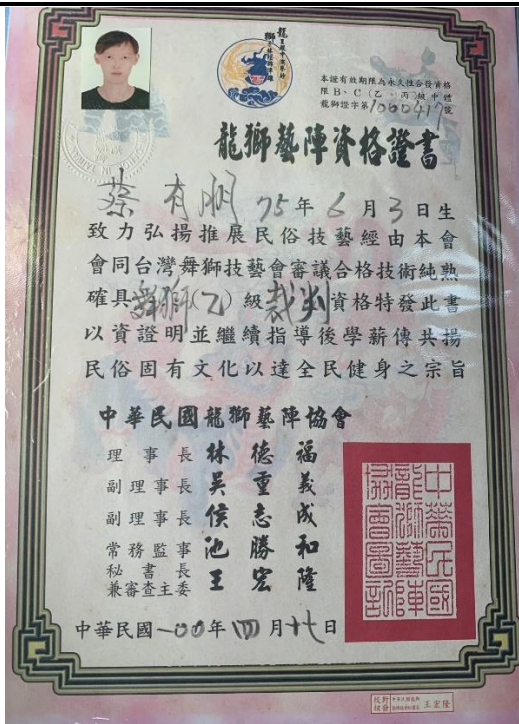 本證有效期限為永久性合發資格
限B、C(乙、丙)級中體
龍獅證字第1000417號
龍獅藝陣資格證書
蔡有朋 75年6月3日生
致力弘揚推展民俗技藝經由本會
會同台灣舞獅技藝會審議合格技術純熟
確具舞獅(乙)級裁判資格特發此書
以資證明並繼續指導後學薪傳共揚
民俗固有文化以達全民健身之宗旨
中華民國龍獅藝陣協會
理事長 林德福
副理事長 吳重義
副理事長 侯志成
常務監事 池勝和
秘書長
兼審查主委 王宏隆
中華民國龍獅藝陣協會圖記
中華民國一00年四月十七日
王宏隆